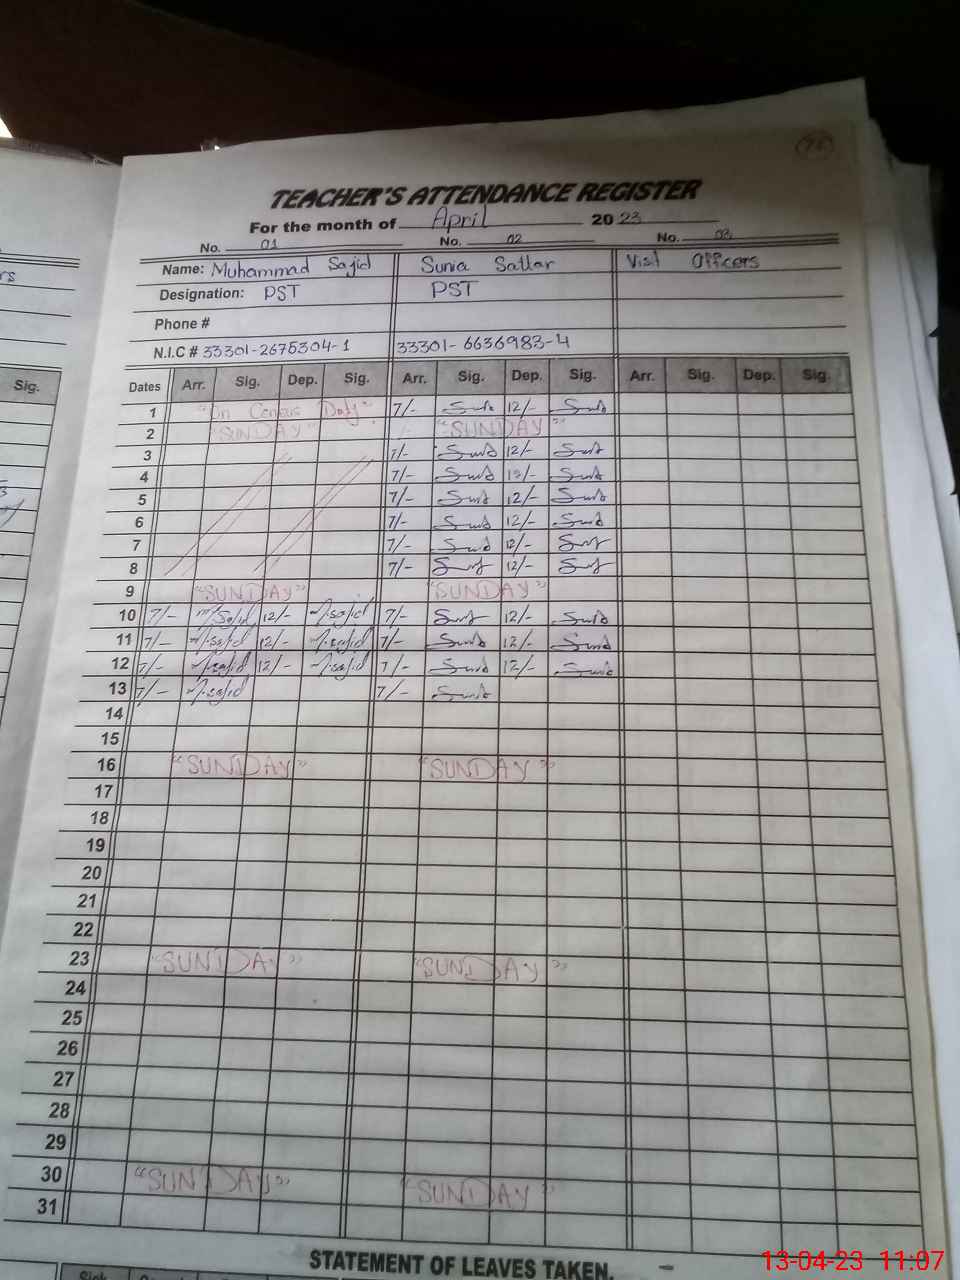 TEACHER'S ATTENDANCE REGISTER
For the month of April 2023
No. 01 No. 02 No. 03
Name: Muhammad Sajid Sunia Sattar Visit Officers
Designation: PST PST
Phone #
N.I.C # 33301-2675304-1 33301-6636983-4
Sig. Dates Arr. Sig. Dep. Sig. Arr. Sig. Dep. Sig. Arr. Sig. Dep. Sig.
1 "On Census Duty" 7/- 12/-
2 "SUNDAY" "SUNDAY"
3 7/- 12/-
4 7/- 12/-
5 7/- 12/-
6 7/- 12/-
7 7/- 12/-
8 7/- 12/-
9 "SUNDAY" "SUNDAY"
10 7/- M.Sajid 12/- M.sajid 7/- 12/-
11 7/- M.sajid 12/- M.sajid 7/- 12/-
12 7/- M.sajid 12/- M.sajid 7/- 12/-
13 7/- M.sajid 7/-
14
15
16 "SUNDAY" "SUNDAY"
17
18
19
20
21
22
23 "SUNDAY" "SUNDAY"
24
25
26
27
28
29
30 "SUNDAY" "SUNDAY"
31
STATEMENT OF LEAVES TAKEN.
13-04-23 11:07